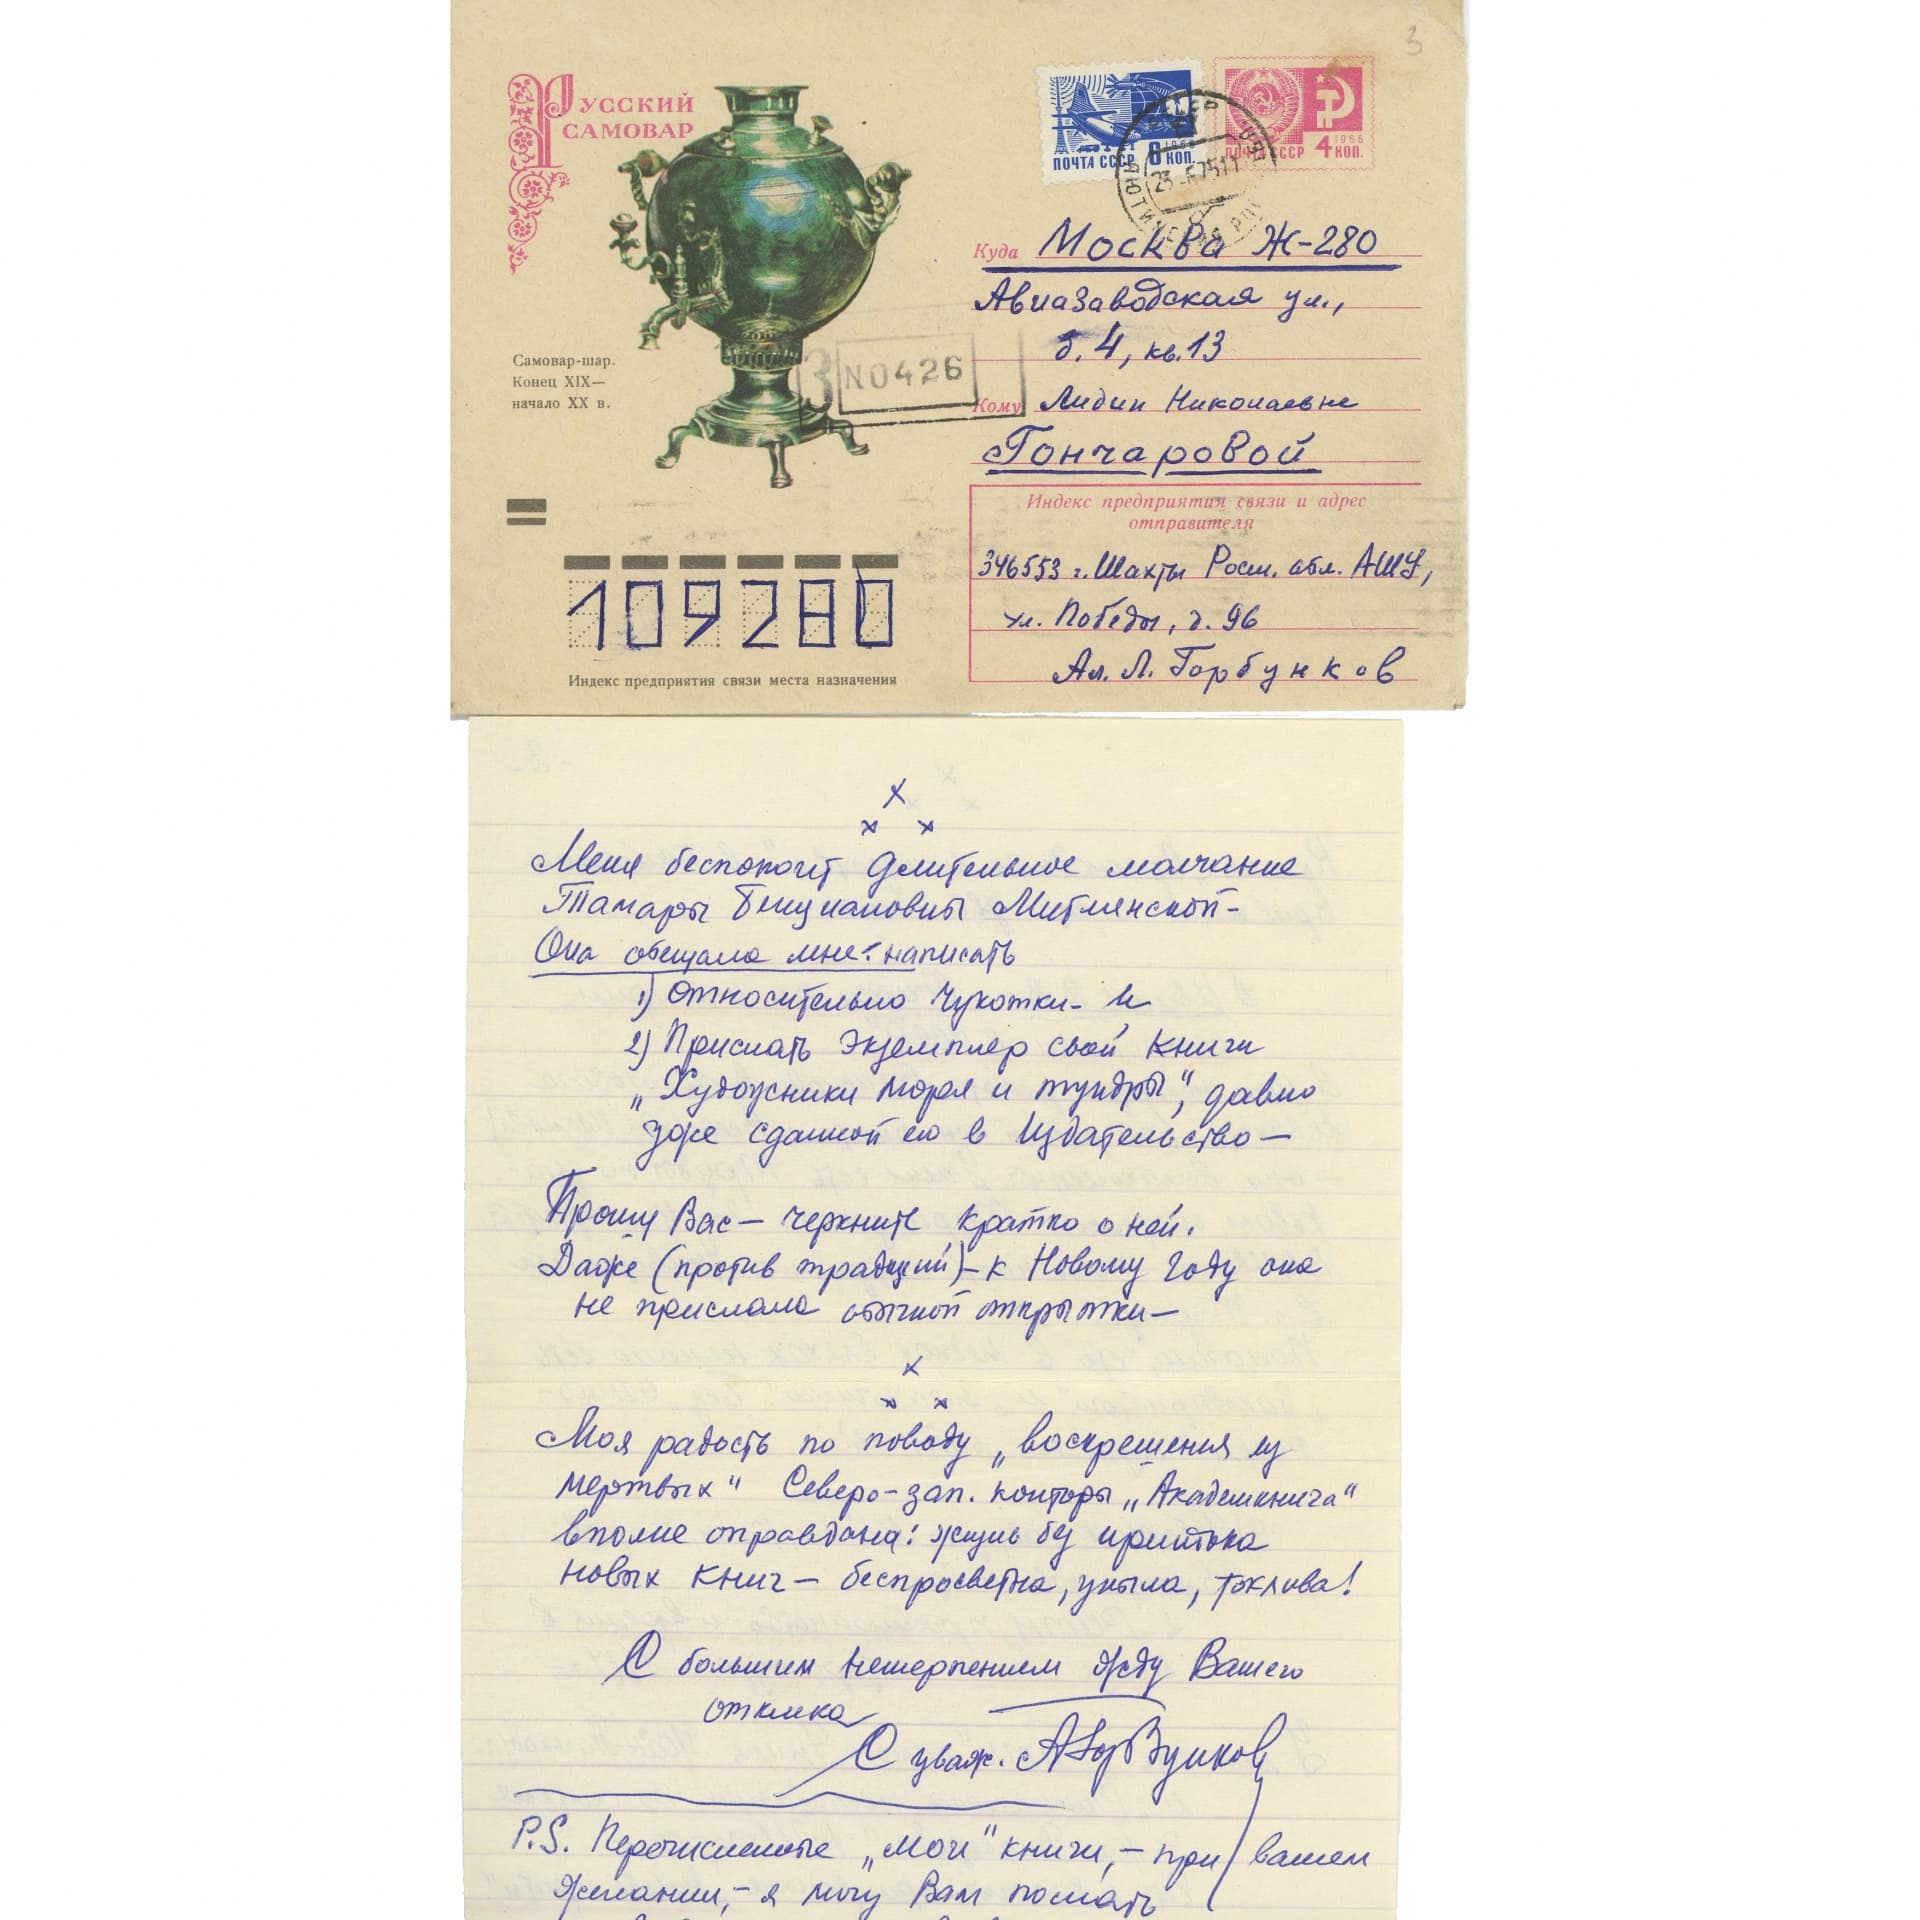 3
Русский
самовар
Самовар-шар.
Конец XIX—
начало XX в.
ПОЧТА СССР 6 КОП.
1966
ПОЧТА СССР 4 КОП.
1966
N0426
Куда Москва Ж-280
Авиазаводская ул.,
д. 4, кв. 13
Кому Лидии Николаевне
Гончаровой
Индекс предприятия связи и адрес
отправителя
346553 г. Шахты Рост. обл. АШУ,
ул. Победы, д. 96
Ал. Л. Горбунков
109280
Индекс предприятия связи места назначения
х
х х
Меня беспокоит длительное молчание
Тамары Митлянской-
Она обещала мне: написать
1) Относительно Чукотки- и
2) Прислать экземпляр своей книги
„Художники моря и тундры", давно
уже сданной ею в Издательство—
Прошу Вас— черкните кратко о ней.
Даже (против традиций)- к Новому Году она
не прислала обычной открытки—
х
х х
Моя радость по поводу „воскрешения из
мертвых" Северо-зап. конторы „Академкнига"
вполне оправдана: жизнь без притока
новых книг— беспросветна, уныла, тосклива!
С большим нетерпением жду Вашего
отклика
С уваж. АГорбунков
P.S. Перечисленные „мои" книги,- при вашем
желании,- я могу Вам послать